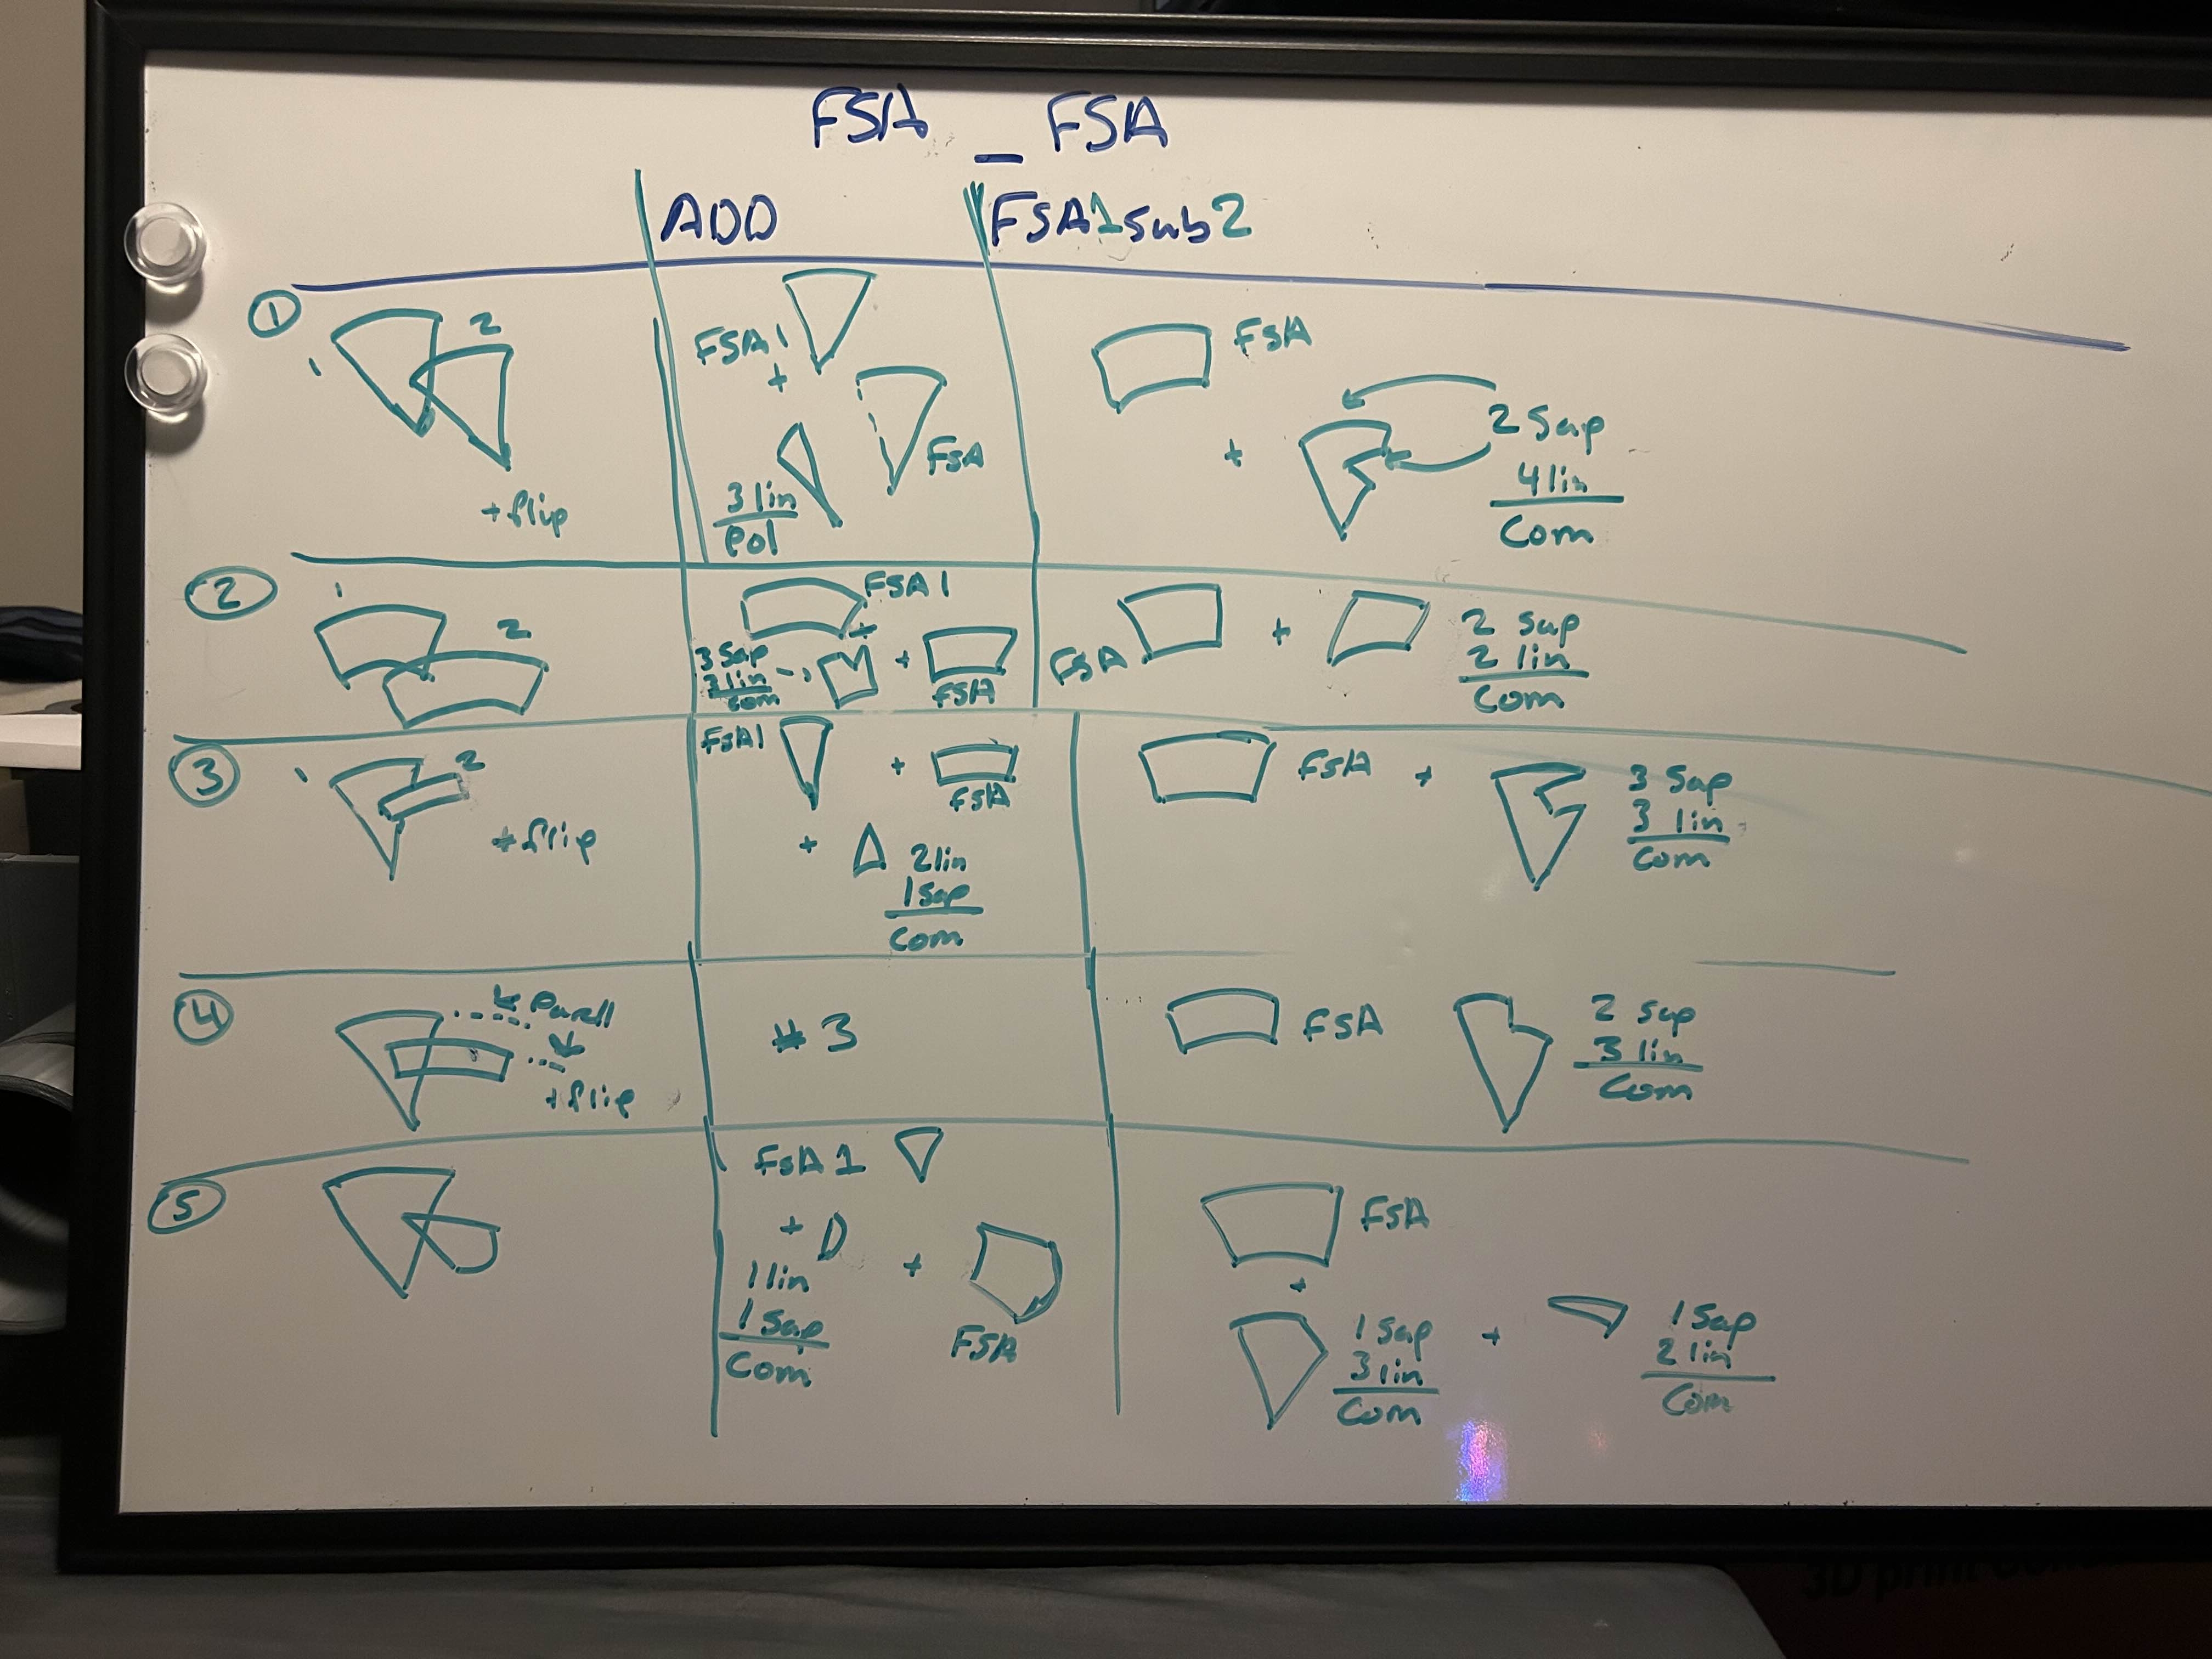 FSA _ FSA
ADD
FSA1sub2
1
1
2
+flip
FSA1
+
FSA
3 lin
pol
FSA
+
2 Sap
4 lin
Com
2
1
2
FSA1
+
3 Sap
3 lin
com
+
FSA
FSA
+
2 sap
2 lin
Com
3
1
2
+flip
FSA1
+
FSA
+
2 lin
1 sap
Com
FSA +
3 Sap
3 lin
Com
4
Parell
+flip
#3
FSA
2 sap
3 lin
Com
5
FSA 1
+
1 lin
1 Sap
Com
+
FSA
FSA
+
1 Sap
3 lin
Com
+
1 Sap
2 lin
Com
3D print